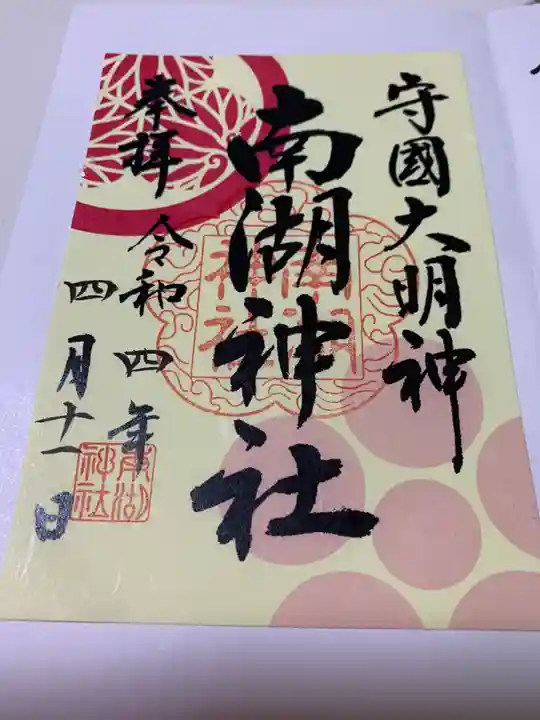 守國大明神
南湖神社
奉拝
令和四年
四月十一日
南湖
神社
南湖
神社